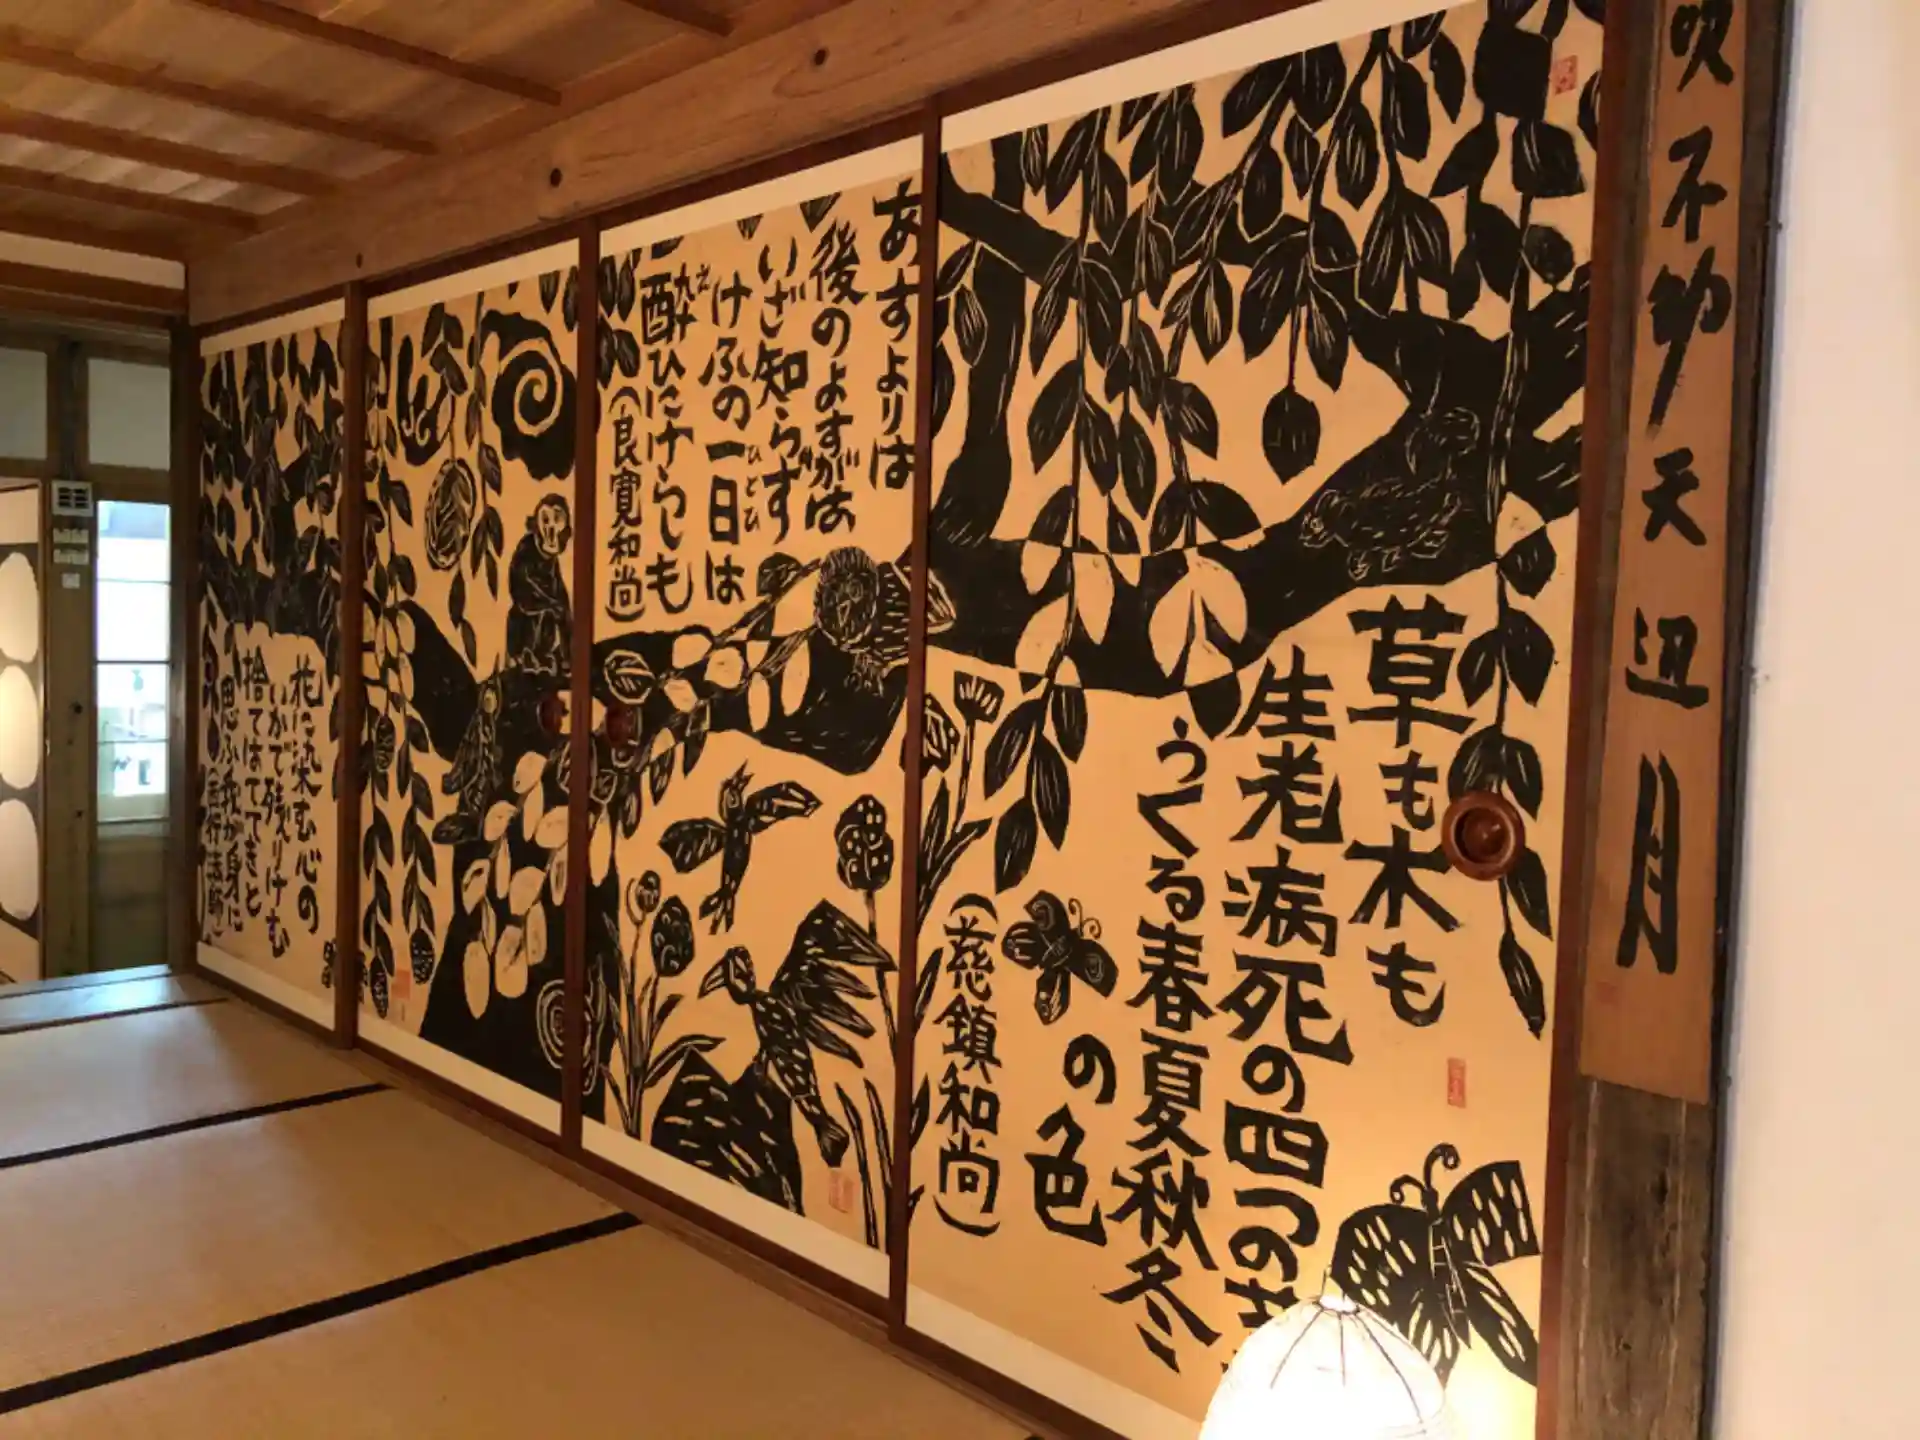 吹不動天辺月
草も木も
生老病死の四つのさ
うくる春夏秋冬
の色
(慈鎮和尚)
あすよりは
後のよすがは
いざ知らず
けふの一日は
ひとひ
酔ひにけらしも
ゑ
(良寛和尚)
花に染む心の
いかで残りけむ
捨てはててきと
思ふ我が身に
(西行法師)